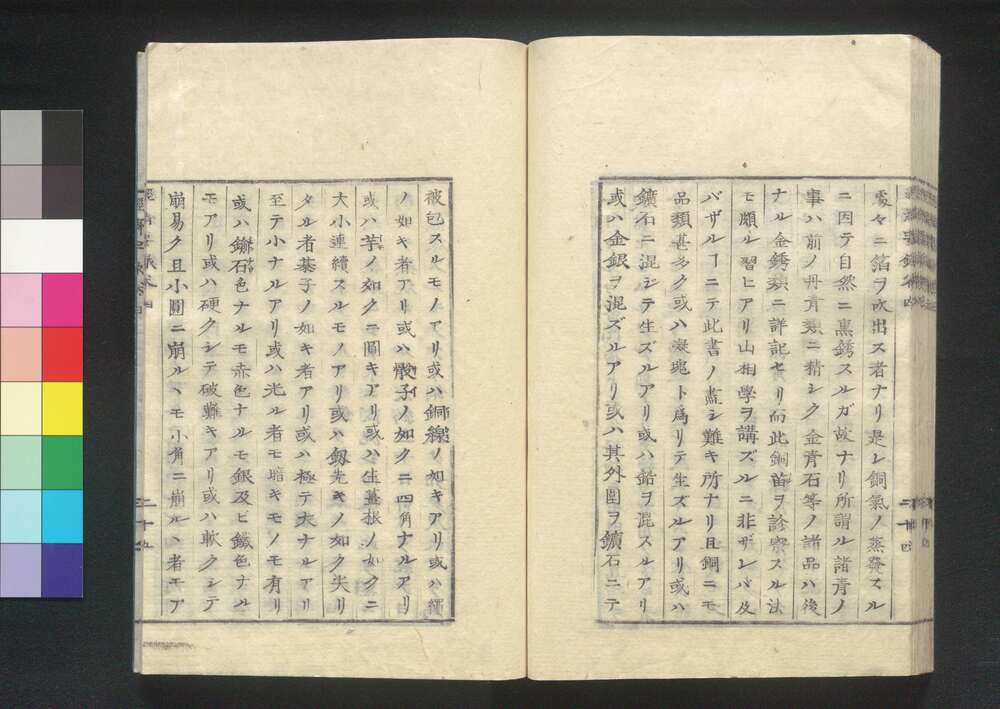 處々ニ箔ヲ吹出ス者ナリ是レ銅氣ノ蒸發スル
ニ因テ自然ニ黒銹スルガ故ナリ所謂ル諸青ノ
事ハ前ノ丹青類ニ精シク金青石等ノ諸品ハ後
ナル金銹類ニ詳記セリ而此銅苗ヲ診察スル法
モ頗ル習ヒアリ山相學ヲ講ズルニ非ザレバ及
バザルヿニテ此書ノ盡シ難キ所ナリ且銅ニモ
品類甚多ク或ハ凝塊ト爲リテ生ズルアリ或ハ
鑛石ニ混シテ生ズルアリ或ハ鉛ヲ混スルアリ
或ハ金銀ヲ混ズルアリ或ハ其外圍ヲ鑛石ニテ
二十四
被包スルモノアリ或ハ銅線ノ如キアリ或ハ繩
ノ如キ者アリ或ハ骰子ノ如クニ四角ナルアリ
或ハ芋ノ如クニ圓キアリ或ハ生薑根ノ如クニ
大小連續スルモノアリ或ハ劔先キノ如ク尖リ
タル者碁子ノ如キ者アリ或ハ極テ大ナルアリ
至テ小ナルアリ或ハ光ル者モ暗キモノモ有リ
或ハ鍮石色ナルモ赤色ナルモ銀及ビ鐵色ナル
モアリ或ハ硬クシテ破難キアリ或ハ軟クシテ
崩易ク且小圓ニ崩ルヽモ小角ニ崩ルヽ者モア
二十五